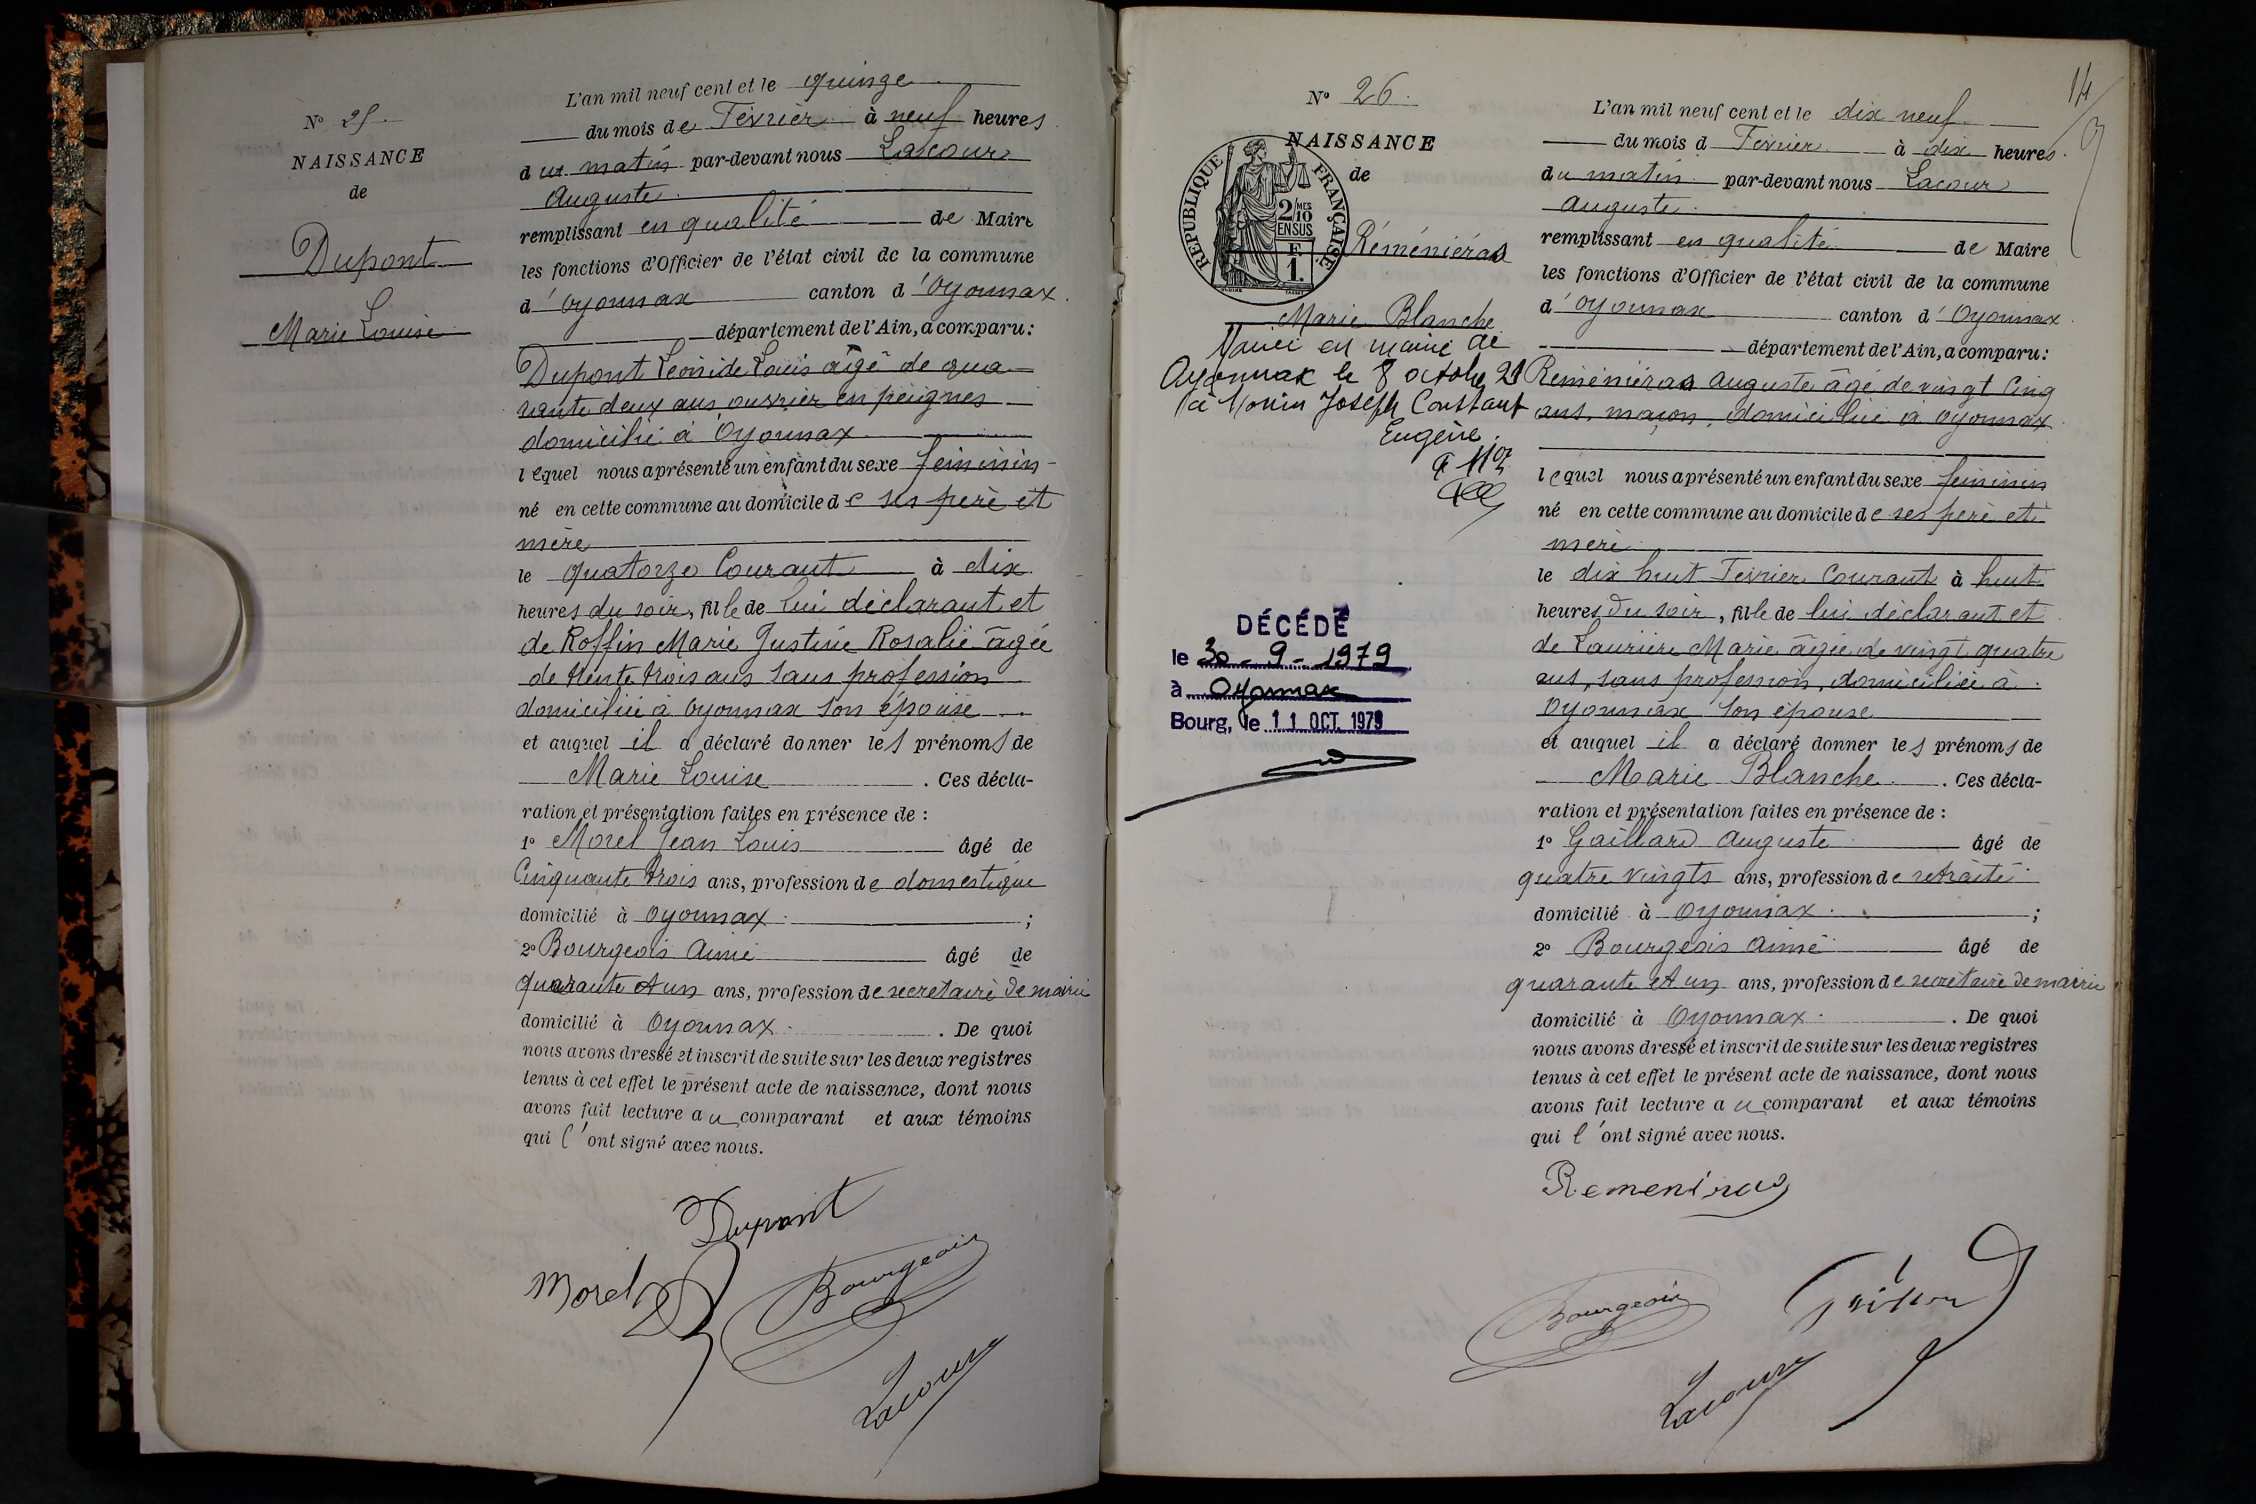 N° 25.
NAISSANCE
de
Dupont
Marie Louise
L'an mil neuf cent et le quinze
du mois de Février à neuf heures
du matin par-devant nous Lacour
Auguste.
remplissant en qualité de Maire
les fonctions d'Officier de l'état civil de la commune
d'Oyonnax canton d'Oyonnax.
département de l'Ain, a comparu:
Dupont Léonide Louis âgé de qua
rante deux ans ouvrier en peignes
domicilié à Oyonnax
lequel nous a présenté un enfant du sexe féminin
né en cette commune au domicile de ses père et
mère
le quatorze Courant à dix
heures du soir, fille de lui déclarant et
de Roffin Marie Justine Rosalie âgée
de trente trois ans sans profession
domiciliée à Oyonnax son épouse
et auquel il a déclaré donner les prénoms de
Marie Louise. Ces décla-
ration et présentation faites en présence de :
1° Morel Jean Louis âgé de
Cinquante trois ans, profession de domestique
domicilié à Oyonnax ;
2° Bourgeois Aimé âgé de
quarante et un ans, profession de secrétaire de mairie
domicilié à Oyonnax. De quoi
nous avons dressé et inscrit de suite sur les deux registres
tenus à cet effet le présent acte de naissance, dont nous
avons fait lecture au comparant et aux témoins
qui l'ont signé avec nous.
Dupont
Morel
Bourgeois
Lacour
14
N° 26.
NAISSANCE
de
REPUBLIQUE FRANÇAISE
2/10 MES
EN SUS
F.
1.
Réméniéras
Marie Blanche
Mariée en mairie de
Oyonnax le 8 octobre 21
à Monin Joseph Constant
Eugène.
DÉCÉDÉ
le 30 - 9 - 1979
à Oyonnax
Bourg, le 11 OCT. 1979
L'an mil neuf cent et le dix neuf
du mois d Février à dix heures.
du matin par-devant nous Lacour
Auguste.
remplissant en qualité de Maire
les fonctions d'Officier de l'état civil de la commune
d'Oyonnax canton d'Oyonnax.
département de l'Ain, a comparu:
Réméniéras Auguste âgé de vingt cinq
ans, maçon, domicilié à Oyonnax
lequel nous a présenté un enfant du sexe féminin
né en cette commune au domicile de ses père et
mère
le dix huit Février Courant à huit
heures du soir, fille de lui déclarant et
de Laurière Marie âgée de vingt quatre
ans, sans profession, domiciliée à
Oyonnax son épouse
et auquel il a déclaré donner les prénoms de
Marie Blanche. Ces décla-
ration et présentation faites en présence de :
1° Gaillard Auguste âgé de
quatre vingts ans, profession de retraité
domicilié à Oyonnax. ;
2° Bourgeois Aimé âgé de
quarante et un ans, profession de secrétaire de mairie
domicilié à Oyonnax. De quoi
nous avons dressé et inscrit de suite sur les deux registres
tenus à cet effet le présent acte de naissance, dont nous
avons fait lecture au comparant et aux témoins
qui l'ont signé avec nous.
Remeniras
Bourgeois
Lacour